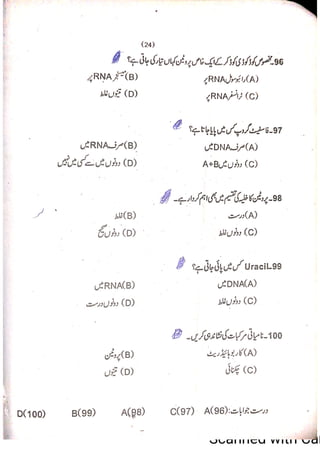 (24)
96۔ مخصوص کوڈ کو ڈی کوڈ کر کے ایک خاص پروٹین کہاں تیار کی جاتی ہے؟
(A) رائبوسومل RNA پر (B) میسنجر RNA پر
(C) ٹرانسفر RNA پر (D) تینوں غلط
97۔ فاسفیٹ گروپ کس میں پایا جاتا ہے؟
(A) صرف DNA میں (B) صرف RNA میں
(C) دونوں میں A+B (D) دونوں میں سے کسی میں نہیں
98۔ پروٹین کا خلیہ کی تقسیم میں بھی اہم کردار ہے۔
(A) درست (B) غلط
(C) دونوں غلط (D) دونوں صحیح
99۔ Uracil کس میں پائی جاتی ہے؟
(A) DNA میں (B) RNA میں
(C) دونوں غلط (D) دونوں درست
100۔ نامیاتی مرکبات کی نشاندہی کریں۔
(A) کاربوہائیڈریٹ (B) پروٹین
(C) چکنائی (D) تینوں
درست جوابات: A(96) C(97) A(98) B(99) D(100)